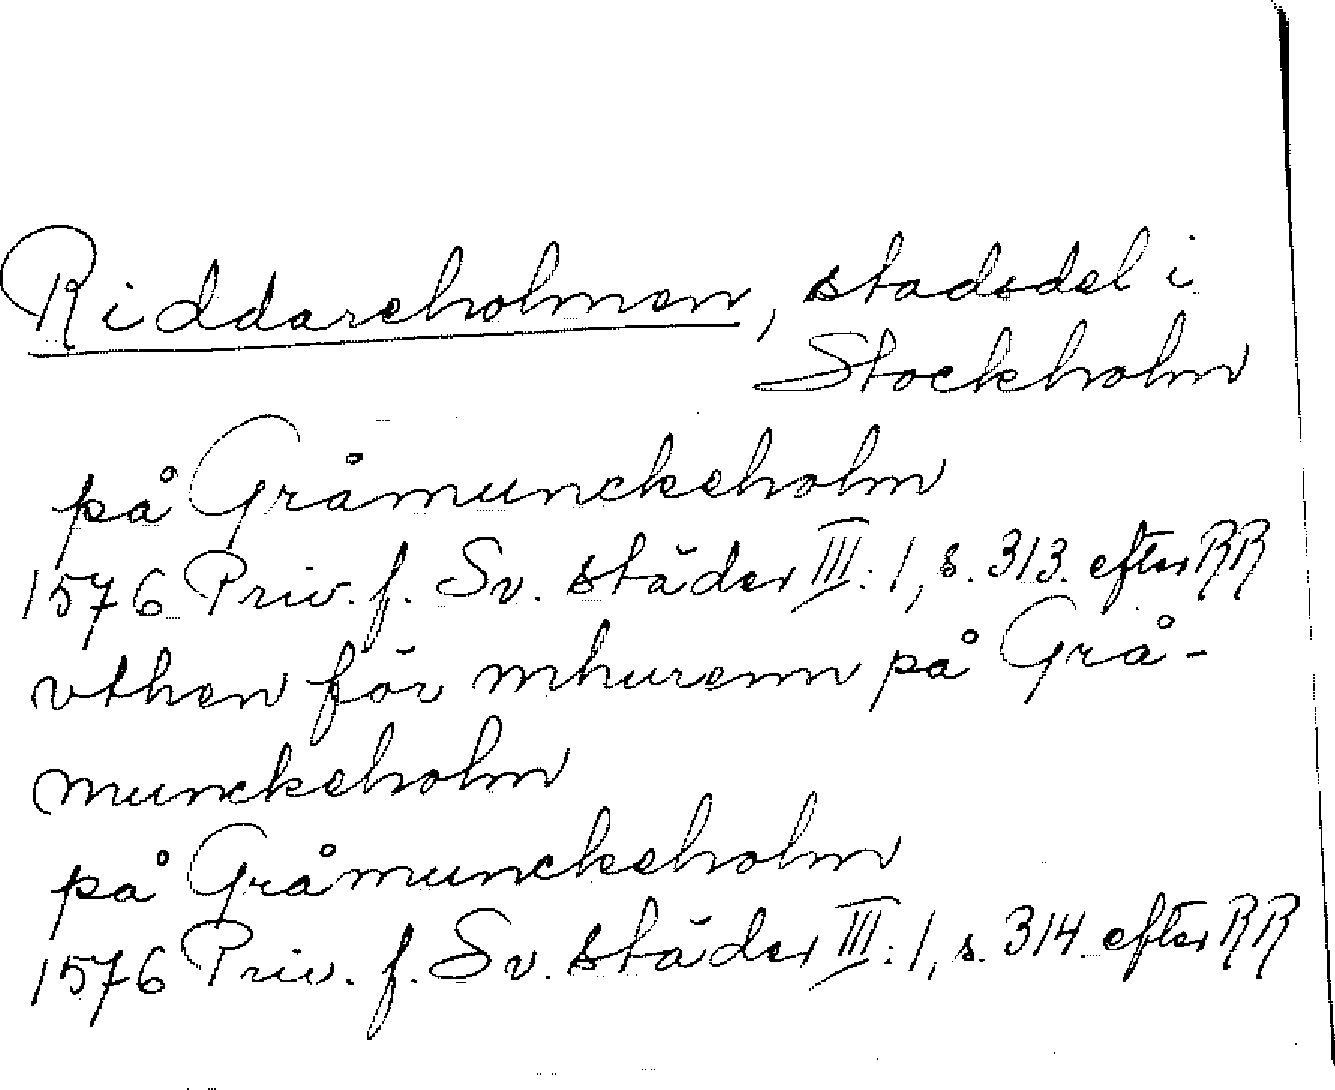 Riddareholmen, stadsdel i
Stockholm
på Gråmunckeholm
1576 Priv. f. Sv. städer III: 1, s. 313 efter RR
vthen för mhurenn på Grå-
munckeholm
på Gråmunckeholm
1576 Priv. f. Sv. städer III: 1, s. 314 efter RR